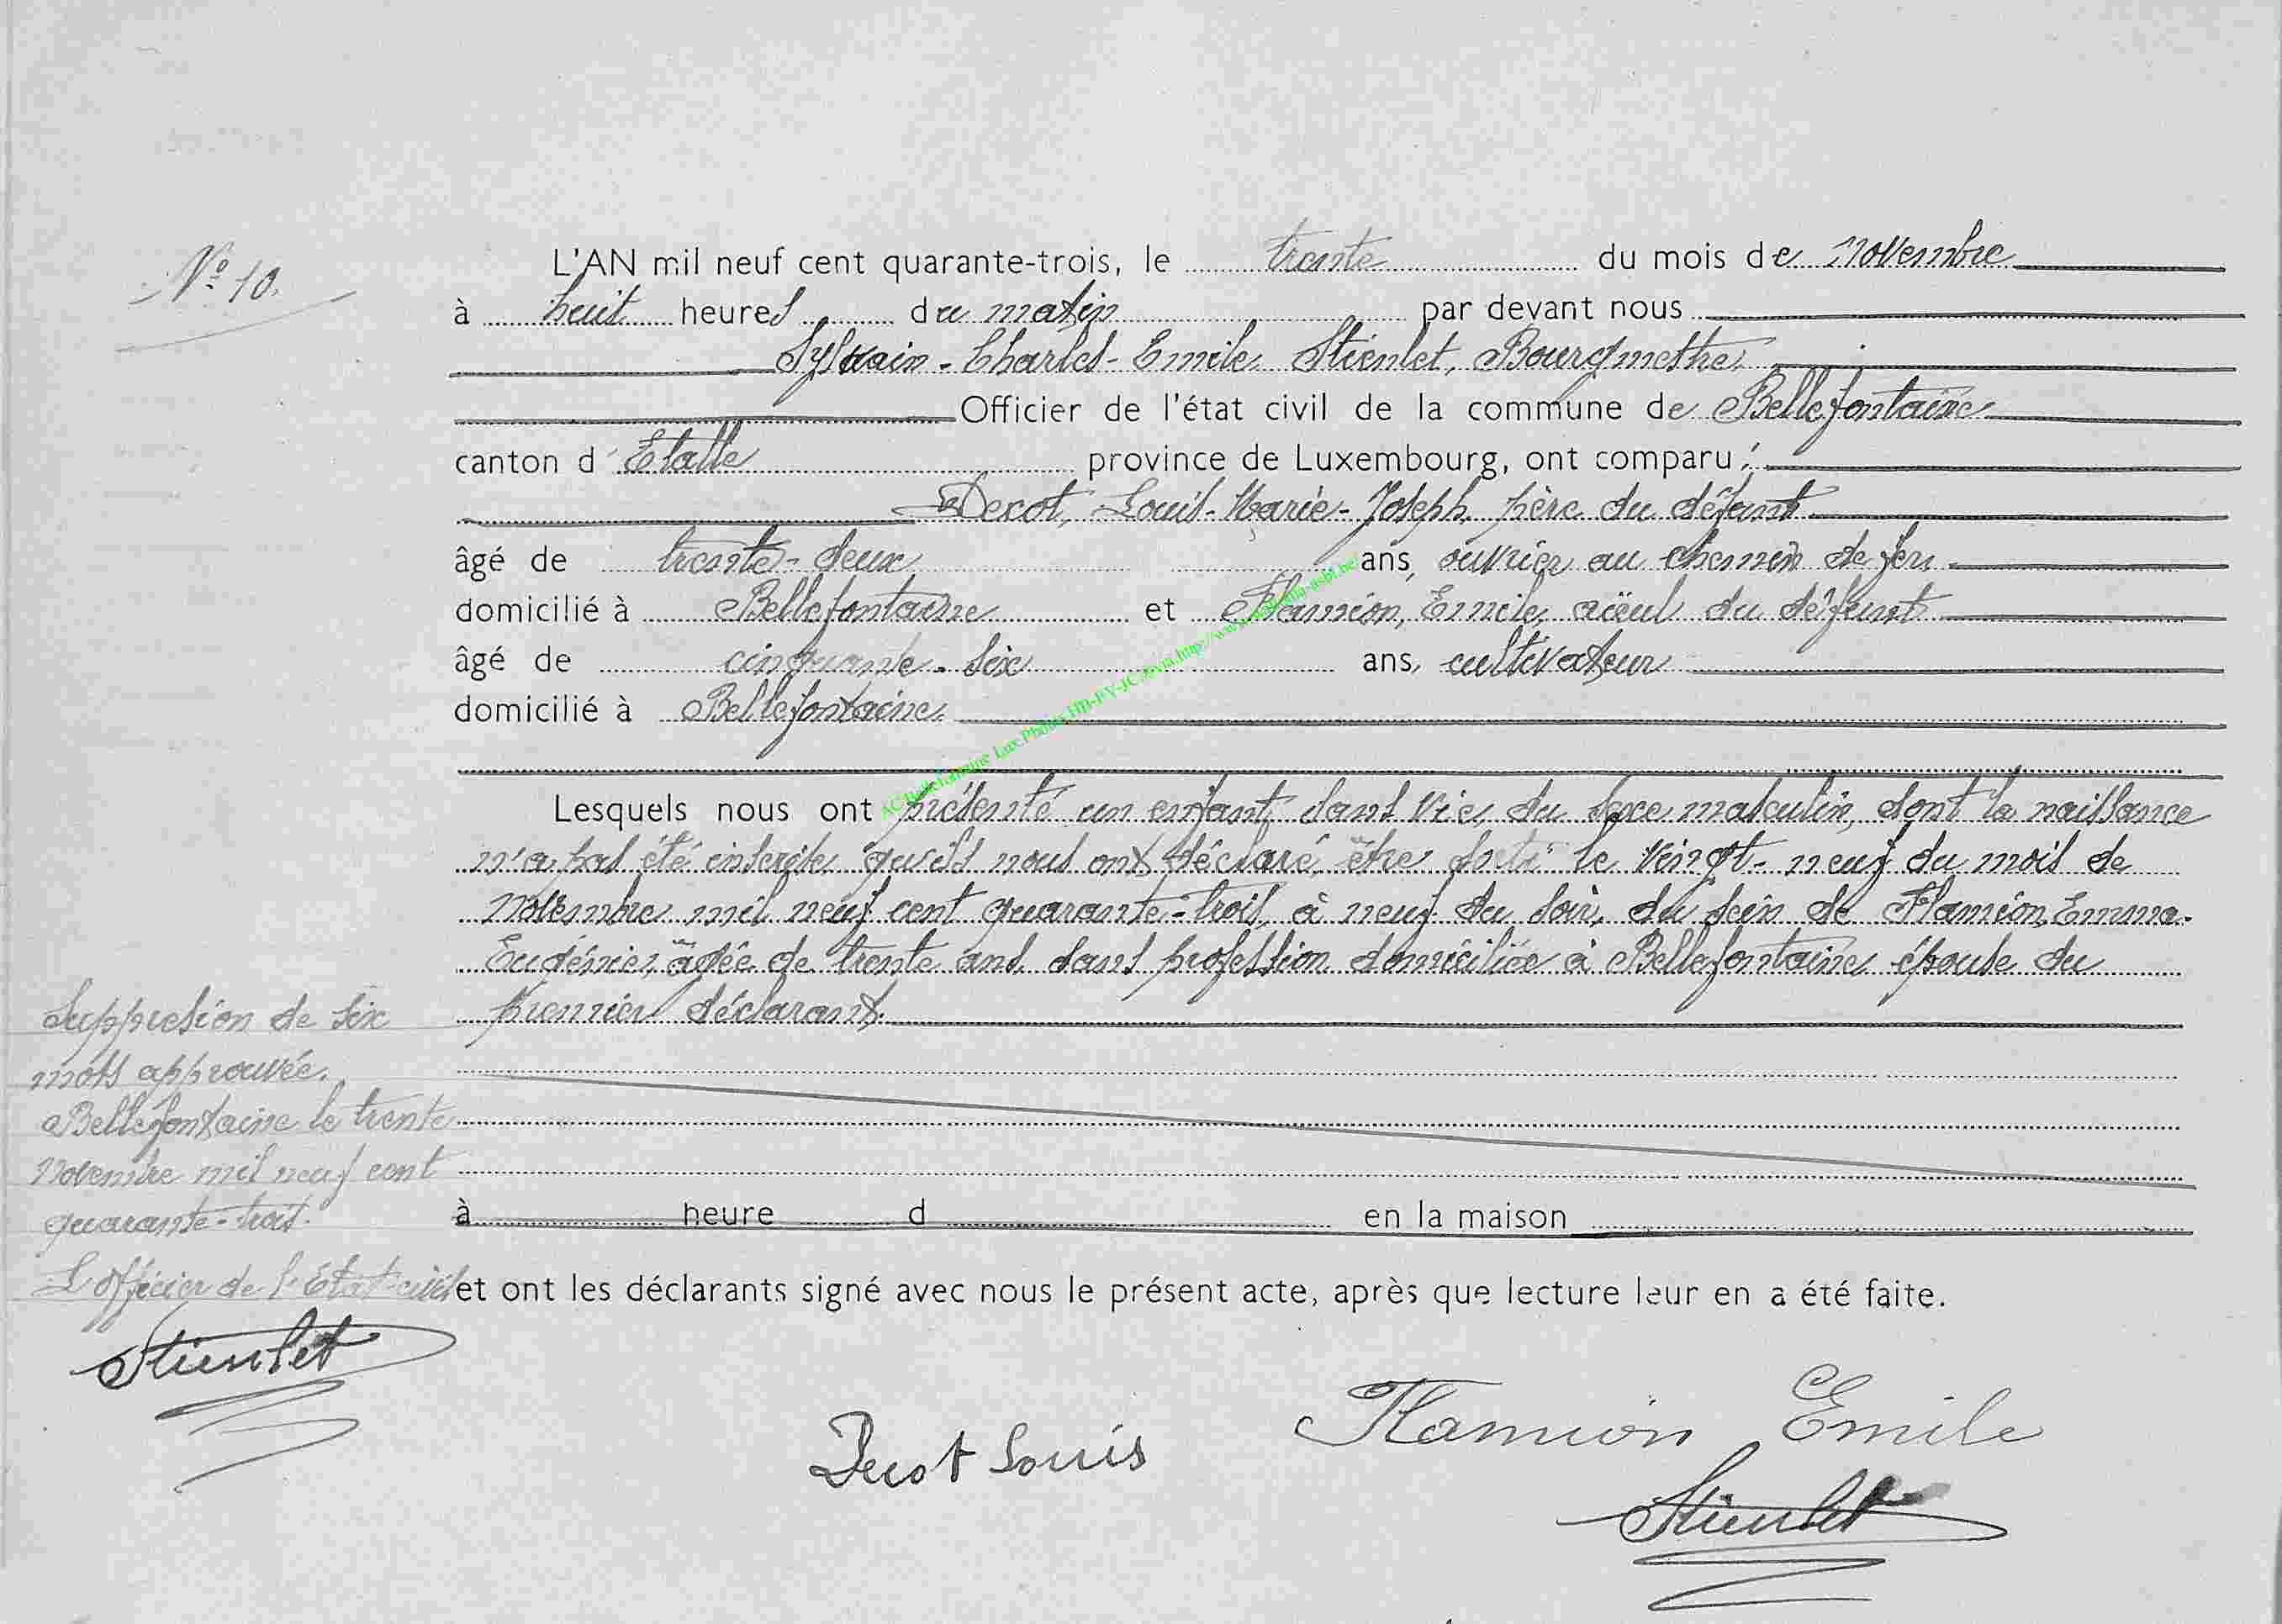 Nº 10.
L'AN mil neuf cent quarante-trois, le trente du mois de Novembre
à huit heures du matin par devant nous
Sylvain-Charles-Emile Stiénlet, Bourgmestre,
Officier de l'état civil de la commune de Bellefontaine
canton d'Etalle province de Luxembourg, ont comparu :
Decot, Louis-Marie-Joseph, père du défunt
âgé de trente-deux ans, ouvrier au chemin de fer
domicilié à Bellefontaine et Flamion, Emile, aïeul du défunt
âgé de cinquante-six ans, cultivateur
domicilié à Bellefontaine
Lesquels nous ont présenté un enfant sans vie, du sexe masculin, dont la naissance
n'a pas été inscrite, qu'ils nous ont déclaré être sorti le vingt-neuf du mois de
Novembre mil neuf cent quarante-trois, à neuf du soir, du sein de Flamion, Emma-
Eugénie, âgée de trente ans, sans profession domiciliée à Bellefontaine épouse du
premier déclarant.
Suppresion de six
mots approuvée.
Bellefontaine le trente
Novembre mil neuf cent
quarante-trois.
L'officier de l'Etat-civil
à heure d en la maison
et ont les déclarants signé avec nous le présent acte, après que lecture leur en a été faite.
Stienlet
Decot Louis
Flamion Emile
Stienlet